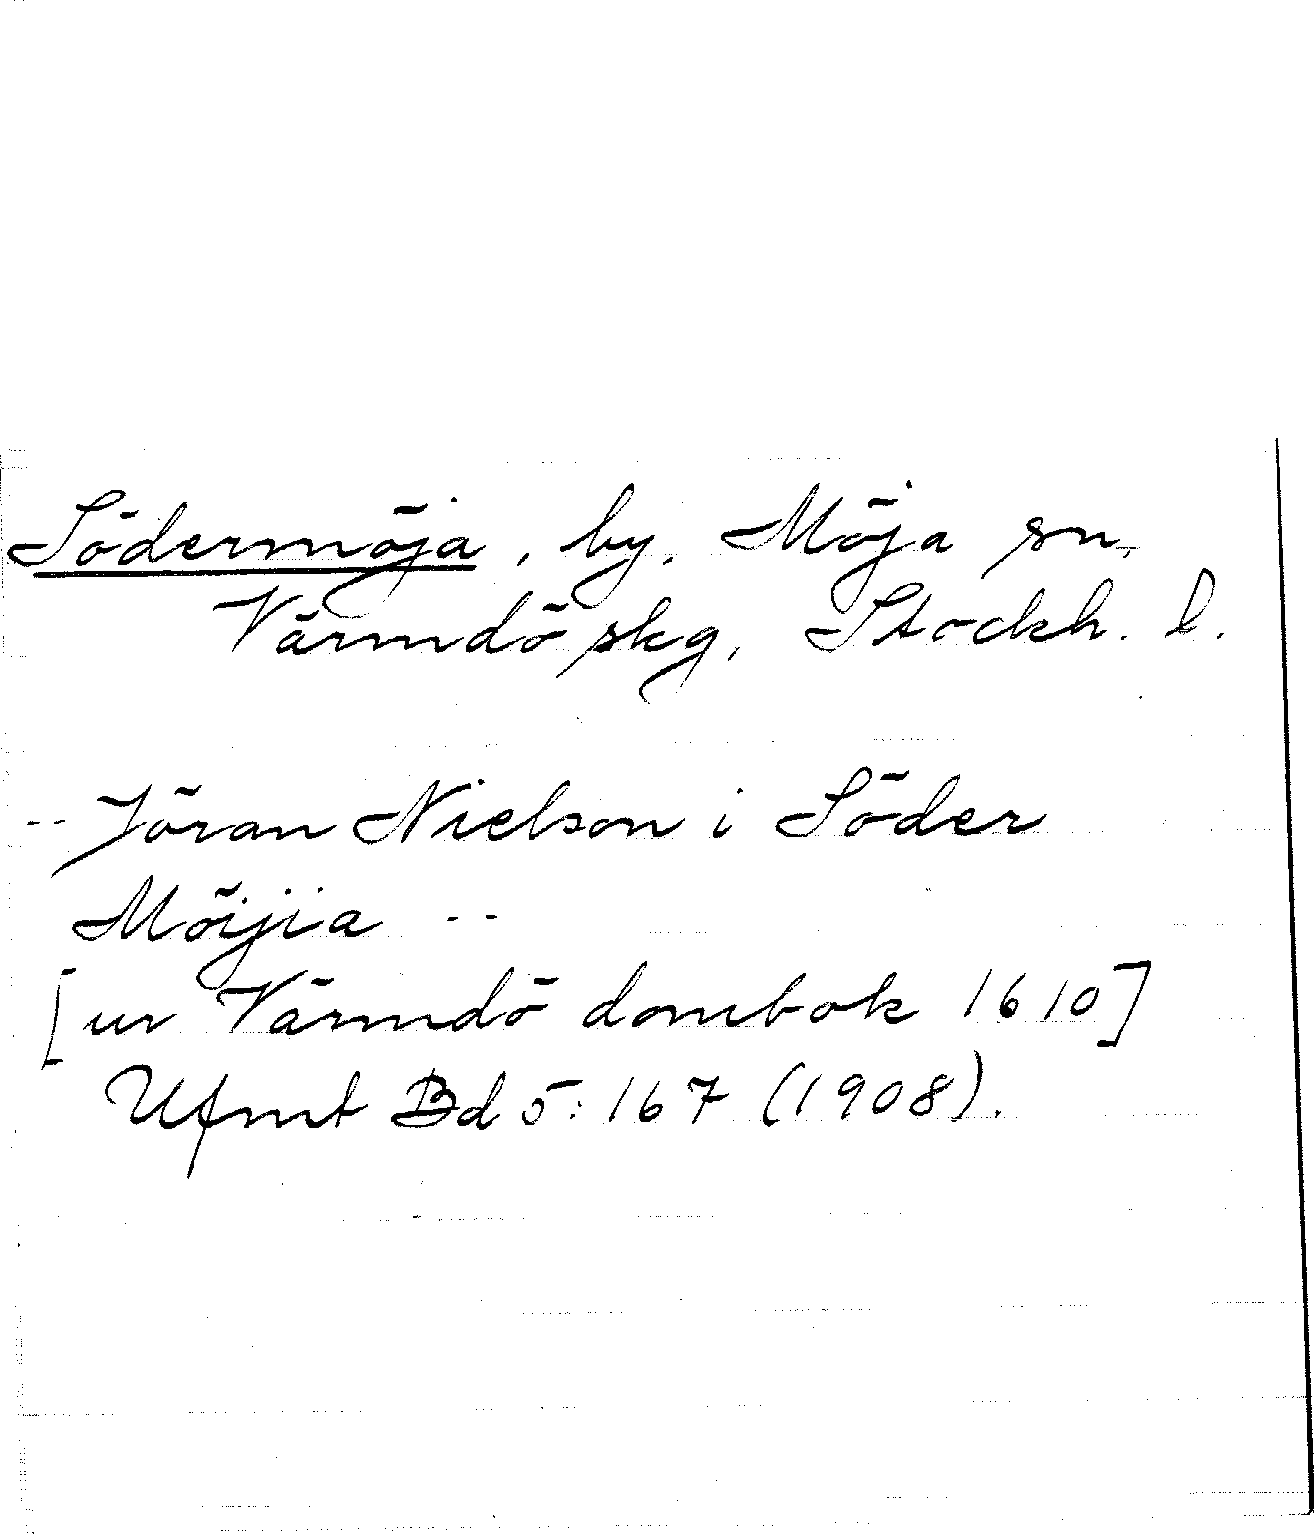 Södermöja, by, Möja sn,
Värmdö skg, Stockh. l.
-- Jöran Nielson i Söder
Möijia --
[ur Värmdö dombok 1610]
Ufmt Bd 5: 167 (1908).